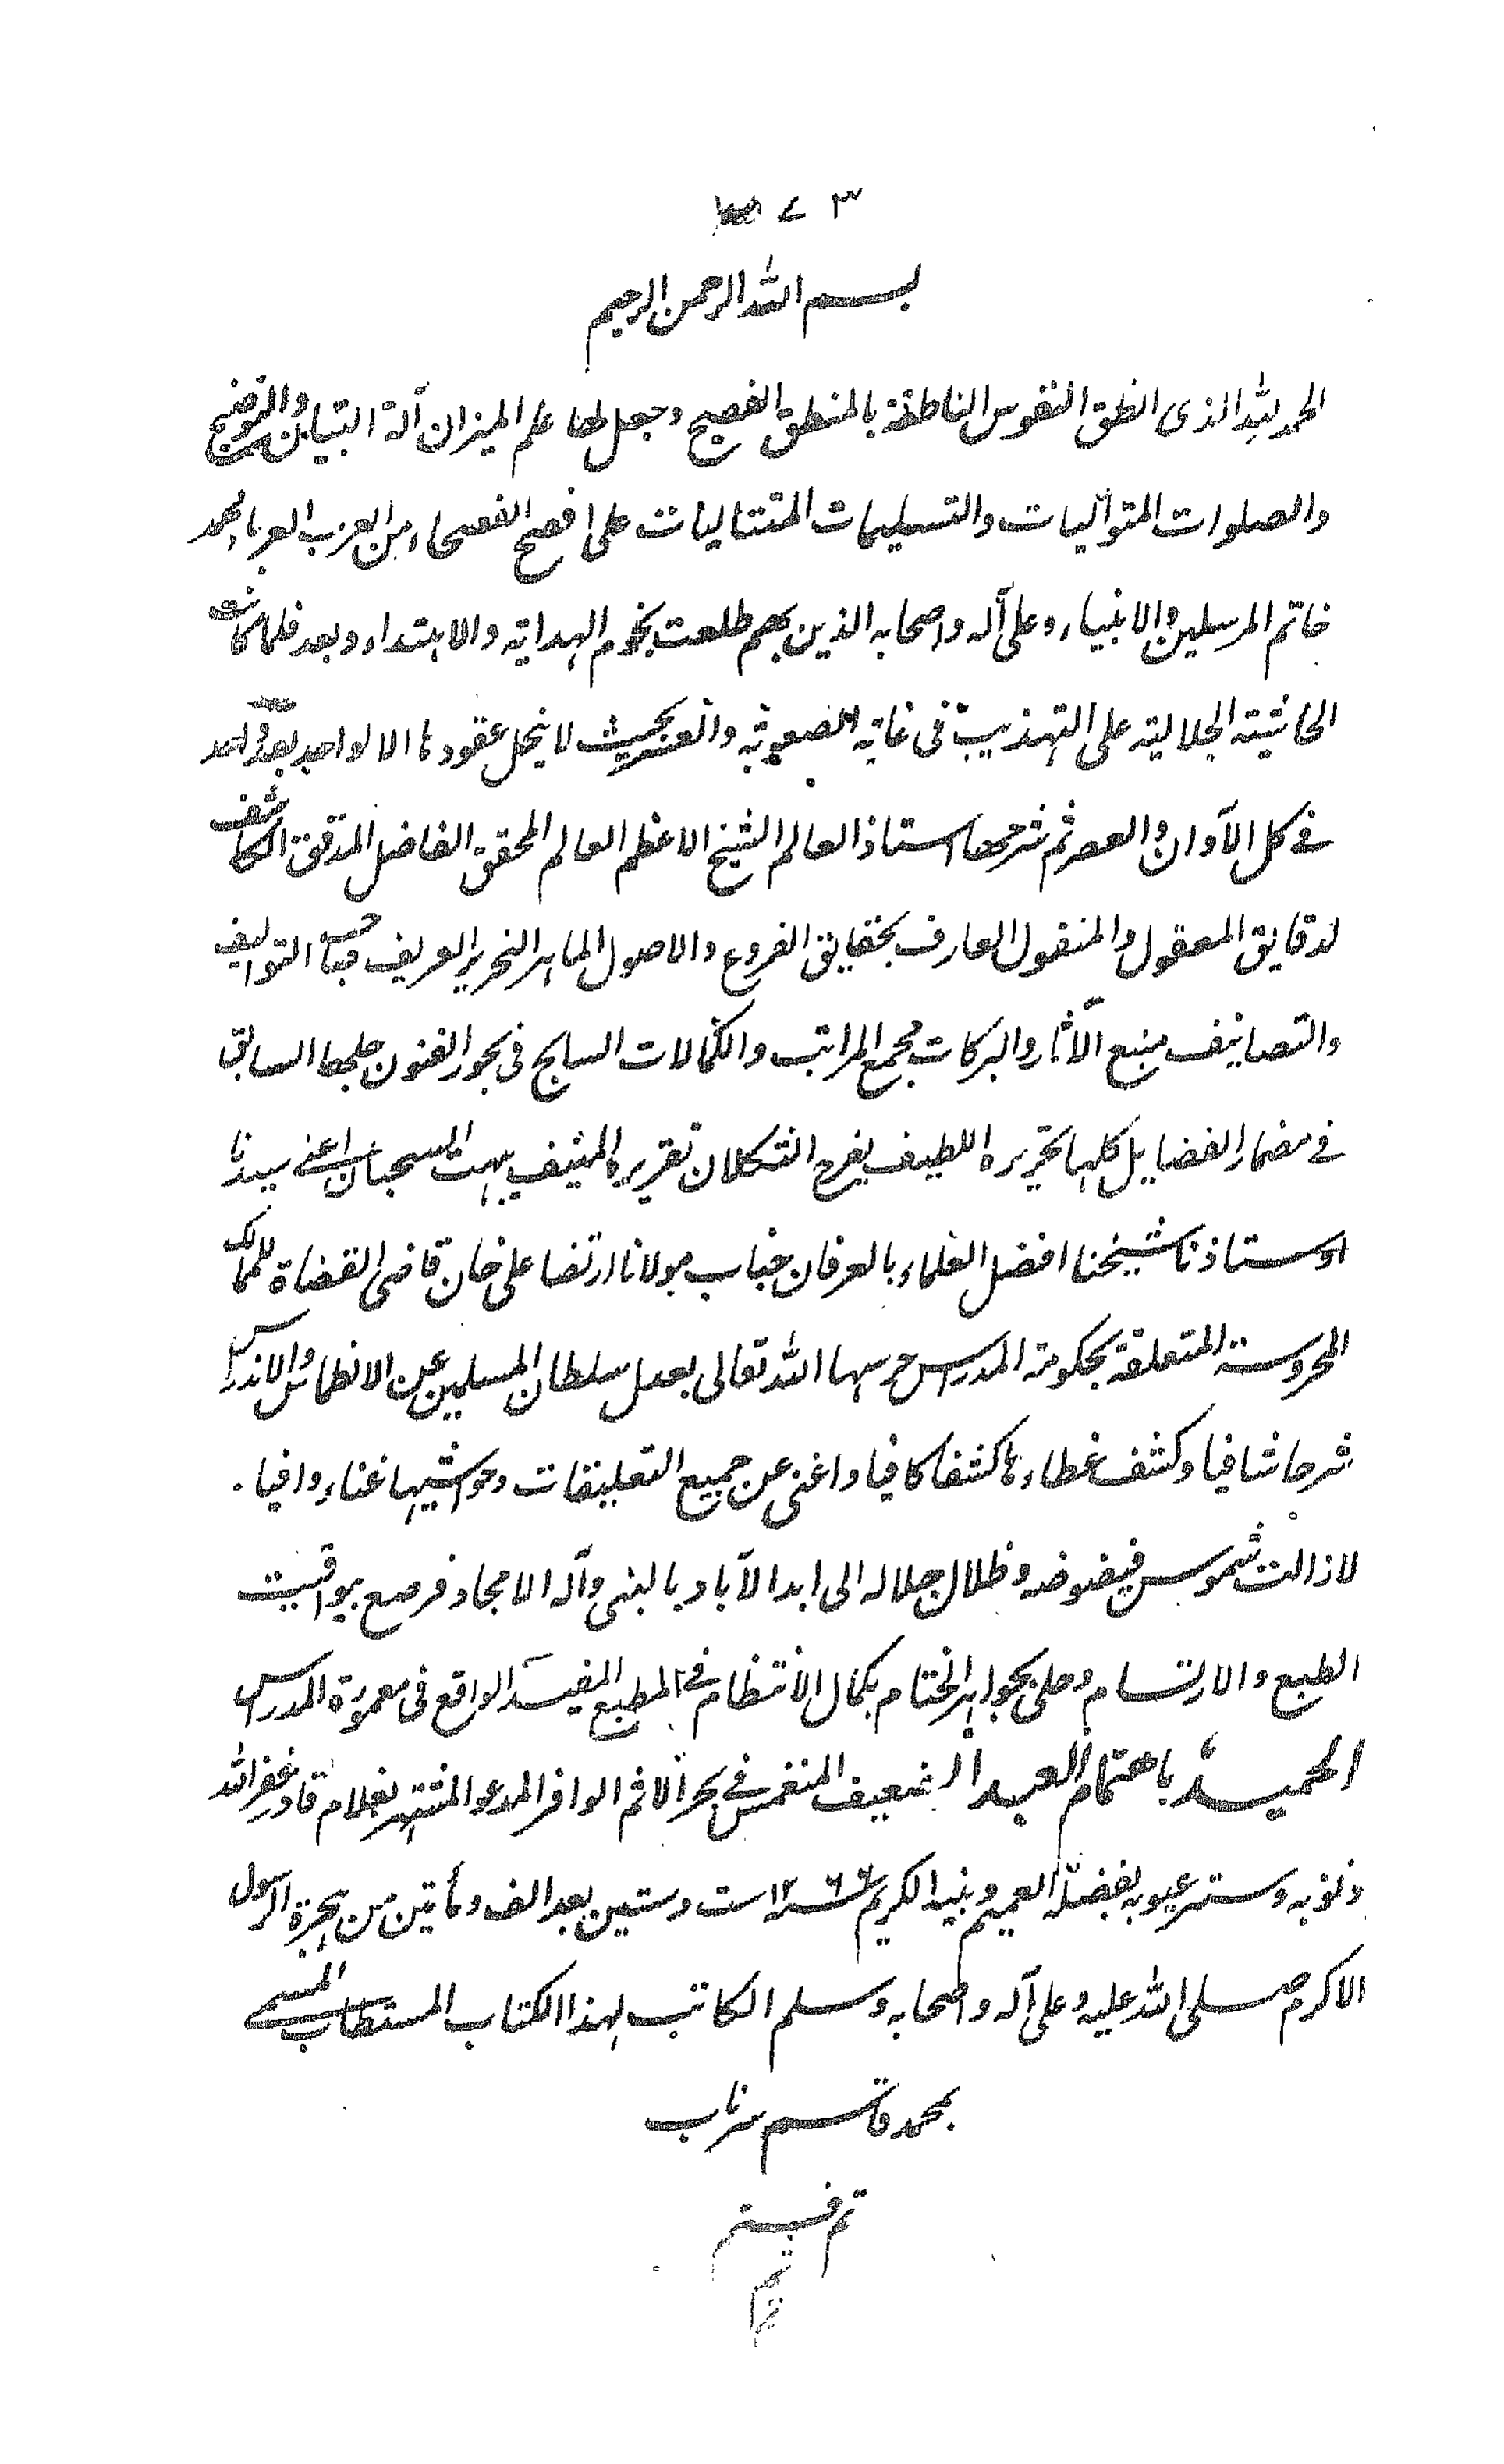 ٣٧
بسم الله الرحمن الرحيم
الحمد لله الذی انطق النفوس الناطقة بالمنطق الفصيح وجعل لها علم الميزان آلة التبيان والتوضيح
والصلوات المتواليات والتسليمات المتتاليات علی افصح الفصحاء من العرب العرباء محمد
خاتم المرسلين والانبياء وعلی آله واصحابه الذين بهم طلعت نجوم الهداية والاهتداء وبعد فلما كانت
الحاشية الجلالية علی التهذيب فی غاية الصعوبة والعسر بحيث لا ينحل عقودها الا لواحد بعد واحد
فی كل الآوان والعصر ثم شرحها استاذ العالم الشيخ الاعظم العالم المحقق الفاضل المدقق الكاشف
لدقايق المعقول والمنقول العارف بحقايق الفروع والاصول الماهر النحرير العريف صاحب التواليف
والتصانيف منبع الآثار والبركات مجمع المراتب والكمالات السابح فی بحور الفنون جلها السابق
فی مضمار الفضايل كلها تحريره اللطيف يفرح الثكلان تقريره المنيف يبهت السحبان اعنی سيدنا
اوستاذنا شيخنا افضل العلماء بالعرفان جناب مولانا ارتضا علی خان قاضی القضاة للممالك
المحروسة المتعلقة بحكومة المدراس حرسها الله تعالی بعدل سلطان المسلمين عن الانطماس والاندراس
شرحا شافيا وكشف غطاءها كشفا كافيا واغنی عن جميع التعليقات وحواشيها غناء وافيا .
لازالت شموس فيضوضه وظلال جلاله الی ابد الآباد بالنبی وآله الامجاد فرصع بيواقيت
الطبع والارتسام وحلی بجواهر الختام بكمال الانتظام فی المطبع المفيد الواقع فی معمورة المدراس
الحميد باهتمام العبد الضعيف المنغمس فی بحر الاثم الوافر المدعو المشتهر بغلام قادر غفر الله
ذنوبه وستر عيوبه بفضله العميم ونبيه الكريم سنه ١٢٦٦ ست وستين بعد الف ومأتين من هجرة الرسول
الاكرم صلی الله عليه وعلی آله واصحابه وسلم الكاتب لهذا الكتاب المستطاب المسمی
بمحمد قاسم
تم